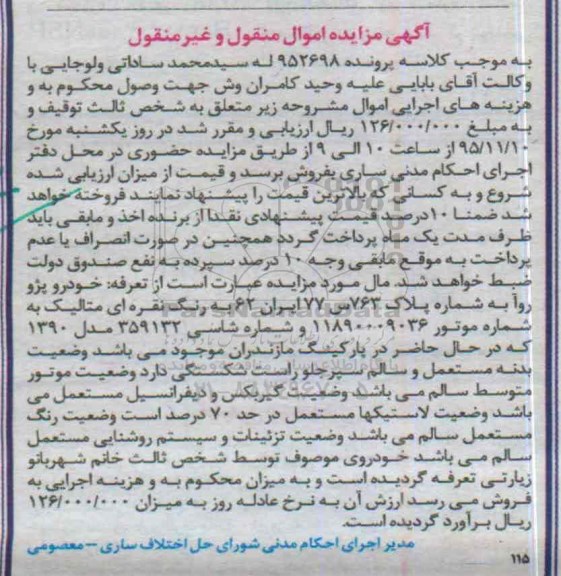 آگهی مزایده اموال منقول و غیرمنقول
به موجب کلاسه پرونده ۹۵۲۶۹۸ له سیدمحمد ساداتی ولوجایی با
وکالت آقای بابایی علیه وحید کامران وش جهت وصول محکوم به و
هزینه های اجرایی اموال مشروحه زیر متعلق به شخص ثالث توقیف و
به مبلغ ۱۲۶/۰۰۰/۰۰۰ ریال ارزیابی و مقرر شد در روز یکشنبه مورخ
۹۵/۱۱/۱۰ از ساعت ۱۰ الی ۹ از طریق مزایده حضوری در محل دفتر
اجرای احکام مدنی ساری بفروش برسد و قیمت از میزان ارزیابی شده
شروع و به کسانی که بالاترین قیمت را پیشنهاد نمایند فروخته خواهد
شد ضمنا ۱۰درصد قیمت پیشنهادی نقدا از برنده اخذ و مابقی باید
ظرف مدت یک ماه پرداخت گردد همچنین در صورت انصراف یا عدم
پرداخت به موقع مابقی وجه ۱۰ درصد سپرده به نفع صندوق دولت
ضبط خواهد شد. مال مورد مزایده عبارت است از تعرفه: خودرو پژو
روآ به شماره پلاک ۷۶۳س۷۷ ایران ۶۲ به رنگ نقره ای متالیک به
شماره موتور ۱۱۸۹۰۰۰۹۰۳۶ و شماره شاسی ۳۵۹۱۳۲ مدل ۱۳۹۰
که در حال حاضر در پارکینگ مازندران موجود می باشد وضعیت
بدنه مستعمل و سالم سپرجلو راست شکستگی دارد وضعیت موتور
متوسط سالم می باشد وضعیت گیربکس و دیفرانسیل مستعمل می
باشد وضعیت لاستیکها مستعمل در حد ۷۰ درصد است وضعیت رنگ
مستعمل سالم می باشد وضعیت تزئینات و سیستم روشنایی مستعمل
سالم می باشد خودروی موصوف توسط شخص ثالث خانم شهربانو
زیارتی تعرفه گردیده است و به میزان محکوم به و هزینه اجرایی به
فروش می رسد ارزش آن به نرخ عادله روز به میزان ۱۲۶/۰۰۰/۰۰۰
ریال برآورد گردیده است.
مدیر اجرای احکام مدنی شورای حل اختلاف ساری – معصومی
۱۱۵